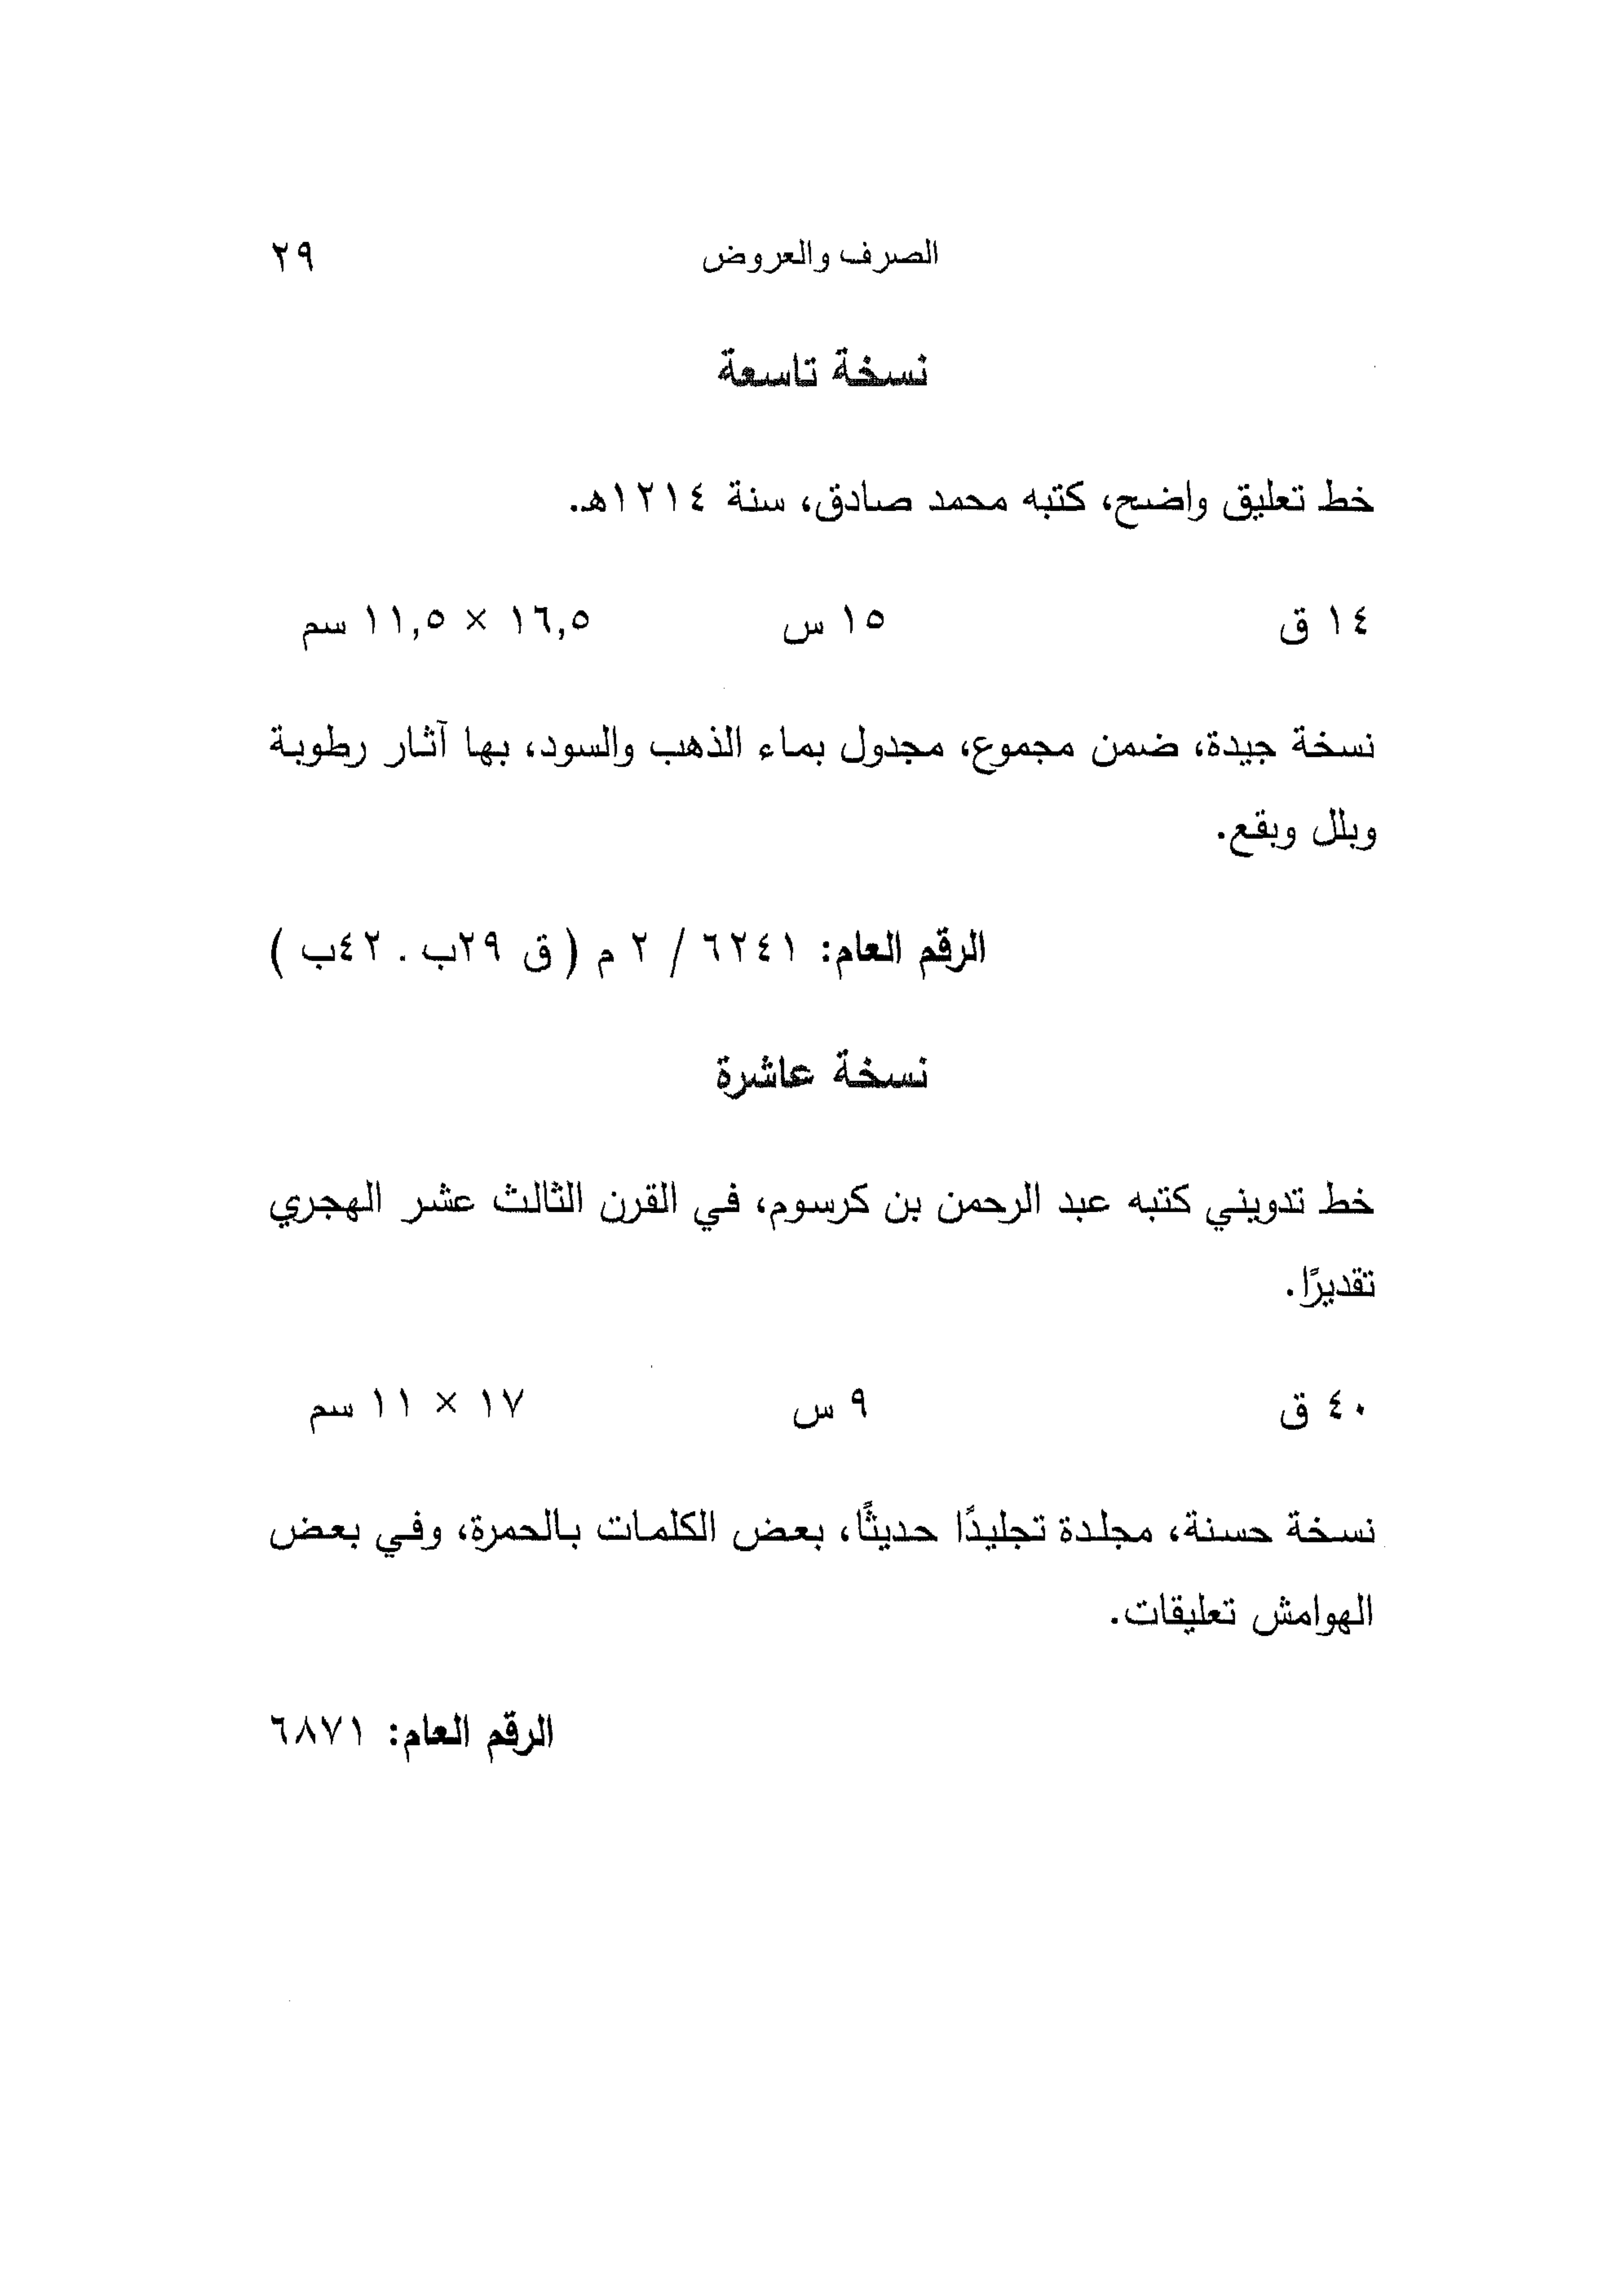 الصرف والعروض ٢٩
نسخة تاسعة
خط تعليق واضح، كتبه محمد صادق، سنة ١٢١٤هـ.
١٤ ق ١٥ س ١٦,٥ × ١١,٥ سم
نسخة جيدة، ضمن مجموع، مجدول بماء الذهب والسود، بها آثار رطوبة
وبلل وبقع.
الرقم العام: ٦٢٤١ / ٢ م ( ق ٢٩ب . ٤٢ب )
نسخة عاشرة
خط تدويني كتبه عبد الرحمن بن كرسوم، في القرن الثالث عشر الهجري
تقديرًا.
٤٠ ق ٩ س ١٧ × ١١ سم
نسخة حسنة، مجلدة تجليدًا حديثًا، بعض الكلمات بالحمرة، وفي بعض
الهوامش تعليقات.
الرقم العام: ٦٨٧١